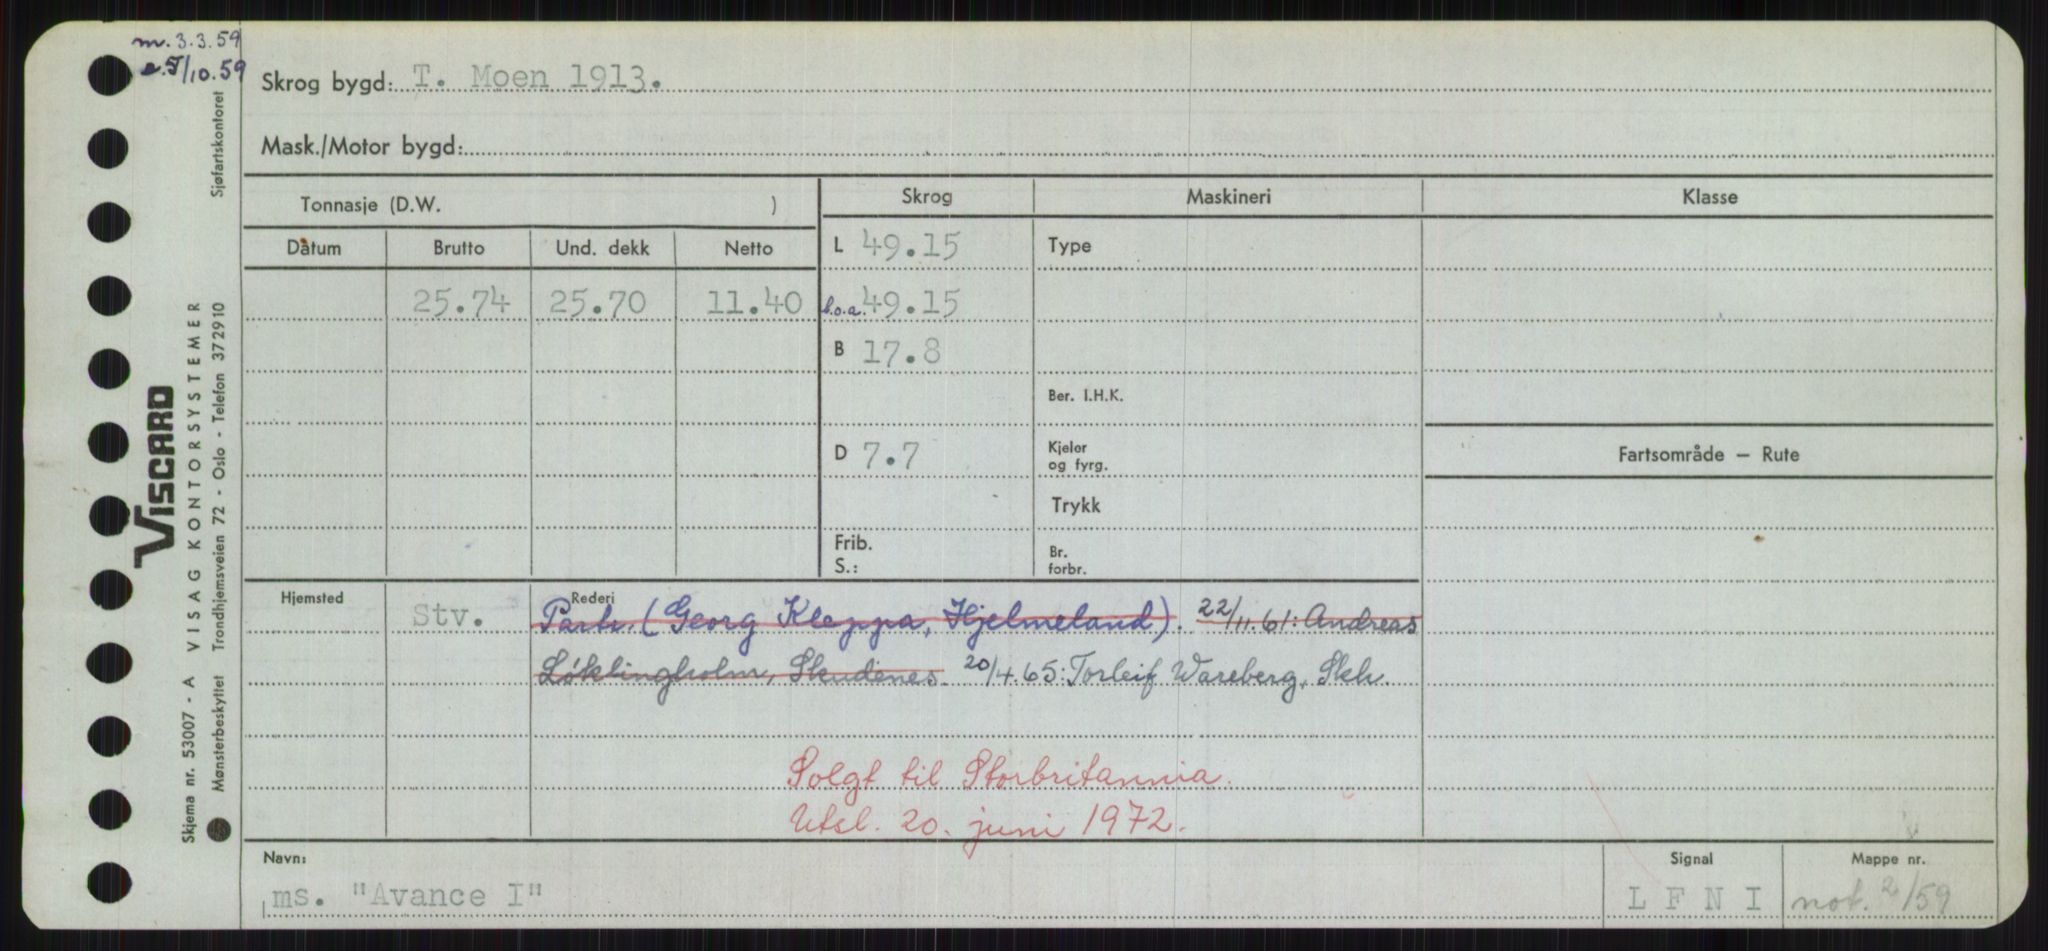 m. 3.3.59
e. 5/10.59
Skrog bygd: T. Moen 1913.
Mask./Motor bygd:
Tonnasje (D.W. )
Skrog
Maskineri
Klasse
Datum
Brutto
Und. dekk
Netto
L 49.15
Type
25.74
25.70
11.40
l.o.a. 49.15
B 17.8
Ber. I.H.K.
D 7.7
Kjeler
og fyrg.
Fartsområde — Rute
Trykk
Frib.
S.:
Br.
forbr.
Hjemsted
Stv.
Rederi
Partr. (Georg Kleppa, Hjelmeland). 22/11.61: Andreas
Løklingholm, Skudenes. 20/4.65: Torleif Wareberg, Skh.
Solgt til Storbritannia.
Utsl. 20. juni 1972.
Navn:
ms. "Avance I"
Signal
L F N I
Mappe nr.
not. 2/59
Sjøfartskontoret
VISCARD
VISAG KONTORSYSTEMER
Trondhjemsveien 72 - Oslo - Telefon 372910
Skjema nr. 53007 - A
Mønsterbeskyttet